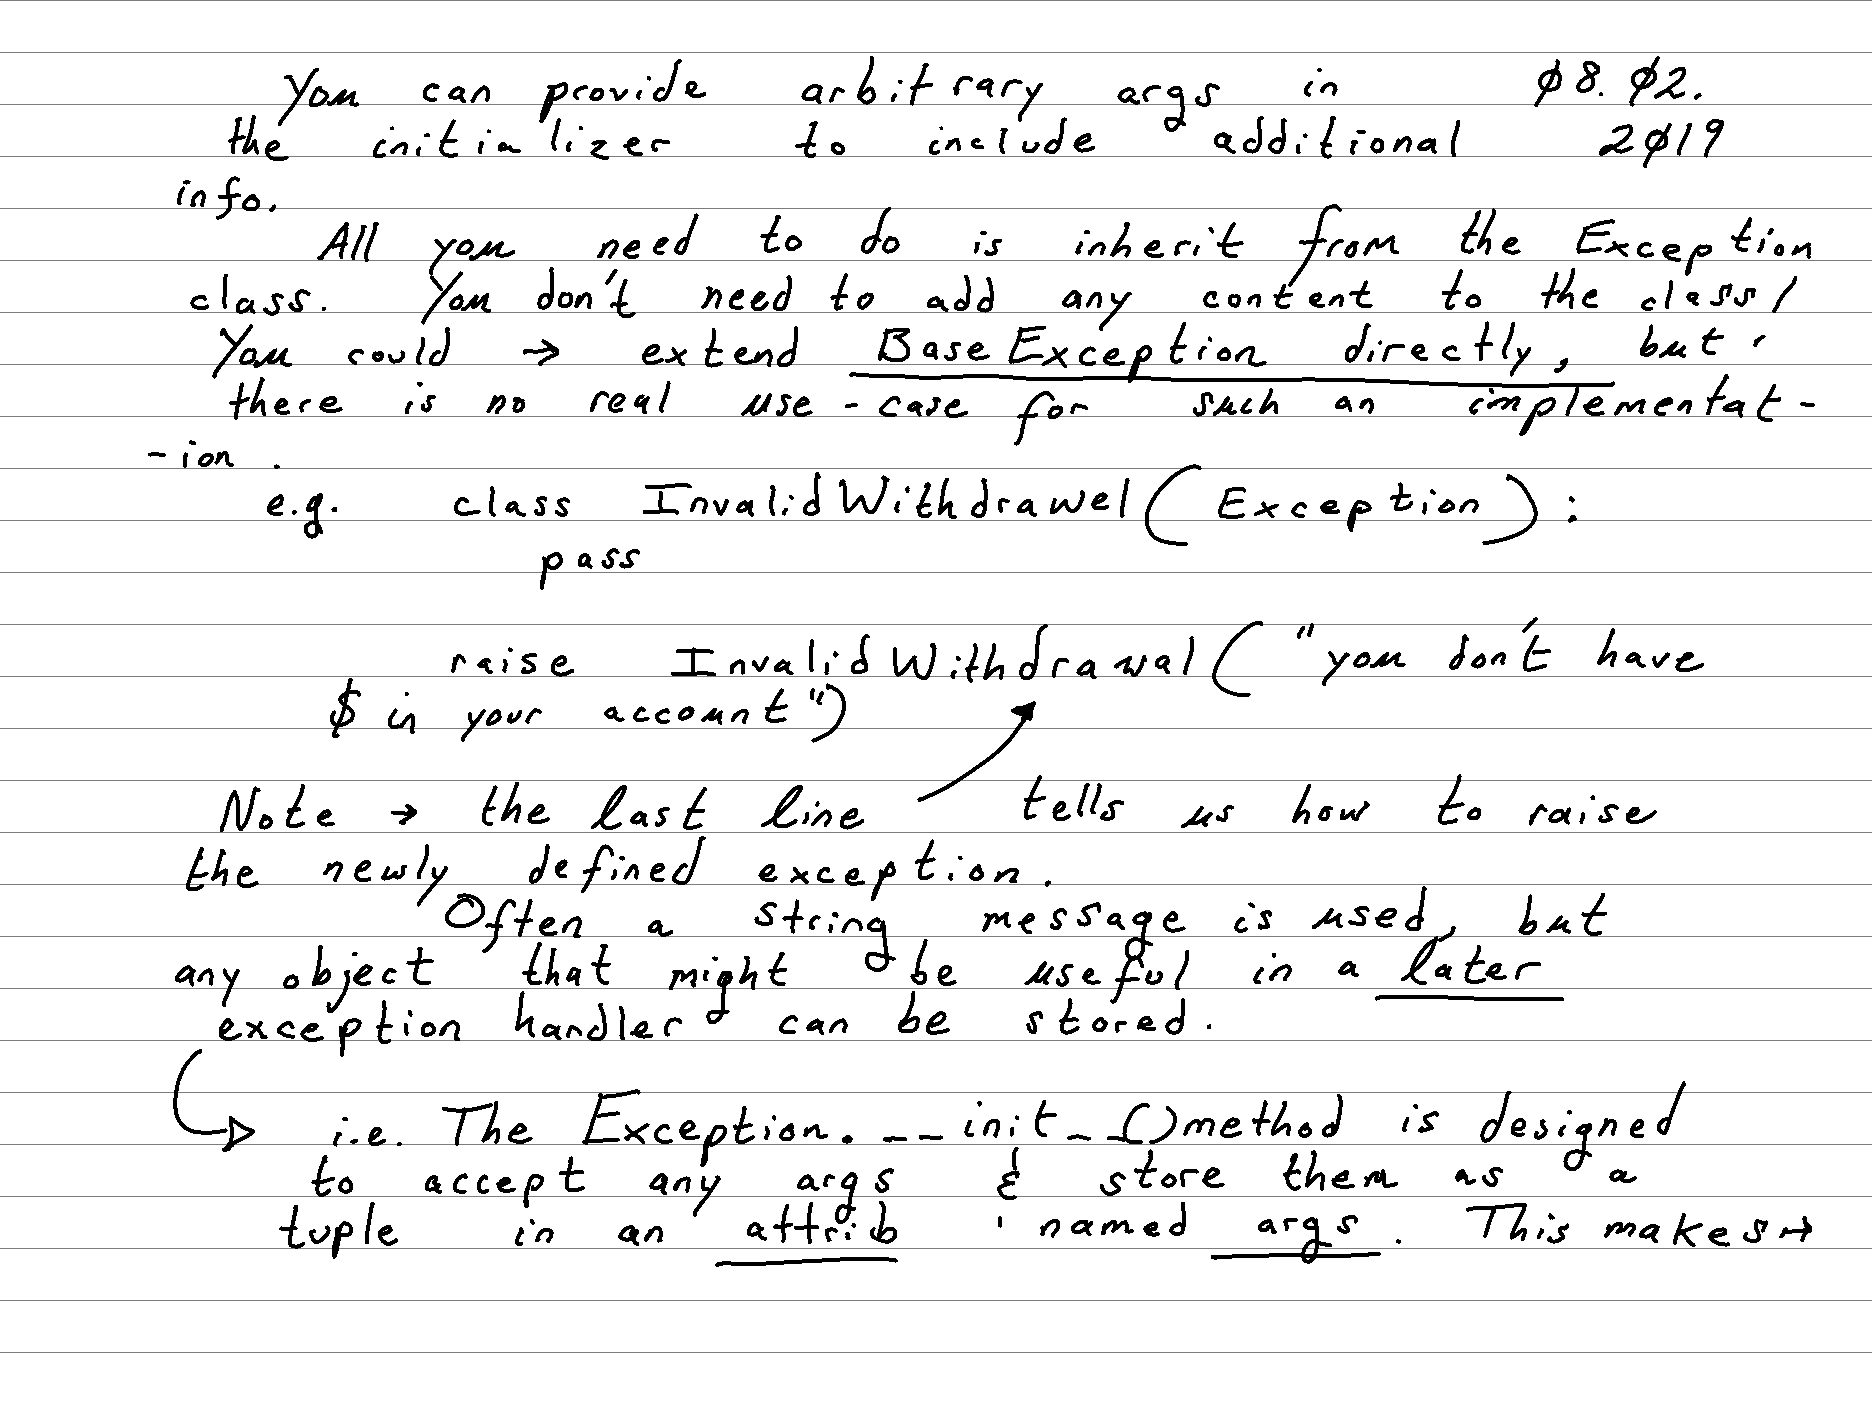 You can provide arbitrary args in Ø8. Ø2.
the initializer to include additional 2Ø19
info.
All you need to do is inherit from the Exception
class. You don't need to add any content to the class!
You could → extend BaseException directly, but
there is no real use-case for such an implementat-
-ion.
e.g. class InvalidWithdrawel(Exception):
pass
raise InvalidWithdrawal("you don't have
$ in your account")
Note → the last line tells us how to raise
the newly defined exception.
Often a string message is used, but
any object that might be useful in a later
exception handler can be stored.
i.e. The Exception.__init__()method is designed
to accept any args & store them as a
tuple in an attrib named args. This makes→